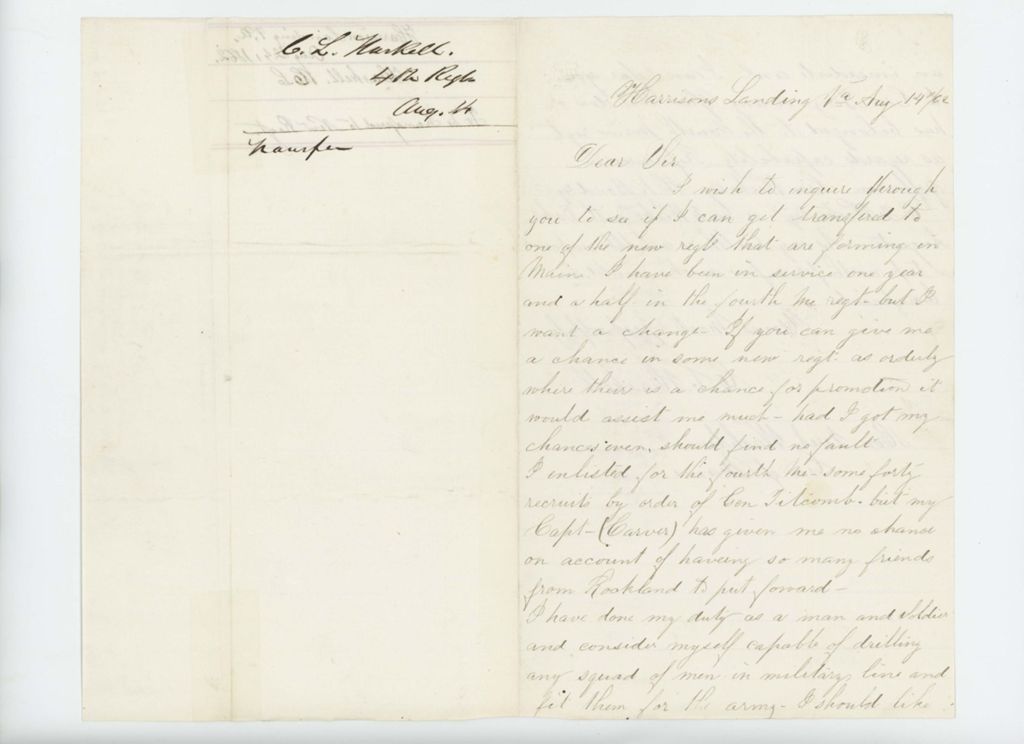 C. L. Haskell.
4th Regt
Aug. 14
Transfer
Harrisons Landing Va Aug 14th/62
Dear Sir
I wish to inquire through
you to se if I can get transfered to
one of the new regt that are forming in
Maine I have been in service one year
and a half in the fourth Me regt- but I
want a change- If you can give me
a chance in some new regt. as orderly
where their is a chance for promotion it
would assist me much- had I got my
chances even, should find no fault
I enlisted for the fourth Me- some forty
recruits by order of Gen Titcomb- but my
Capt- (Carver) has given me no chance
on account of haveing so many friends
from Rockland to put foward-
I have done my duty as a man and Soldier
and consider myself capable of drilling
any squad of men in military line and
fit them for the army- I should like